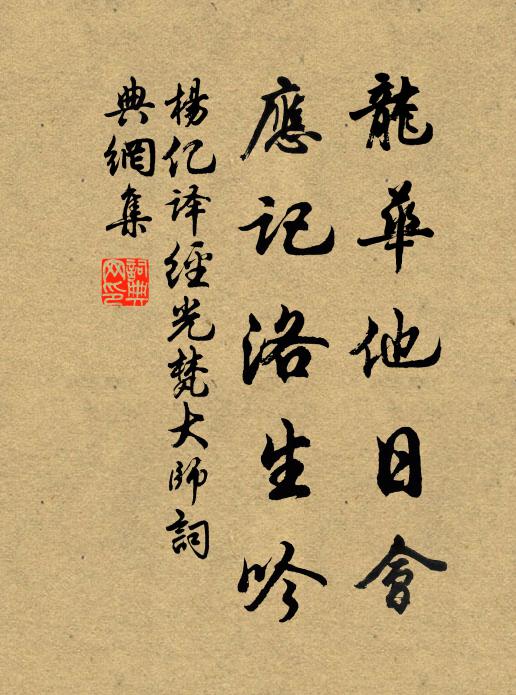 龍華他日會
應記洛生吟
楊亿译經光梵大師詞
典網集
詞典
网印